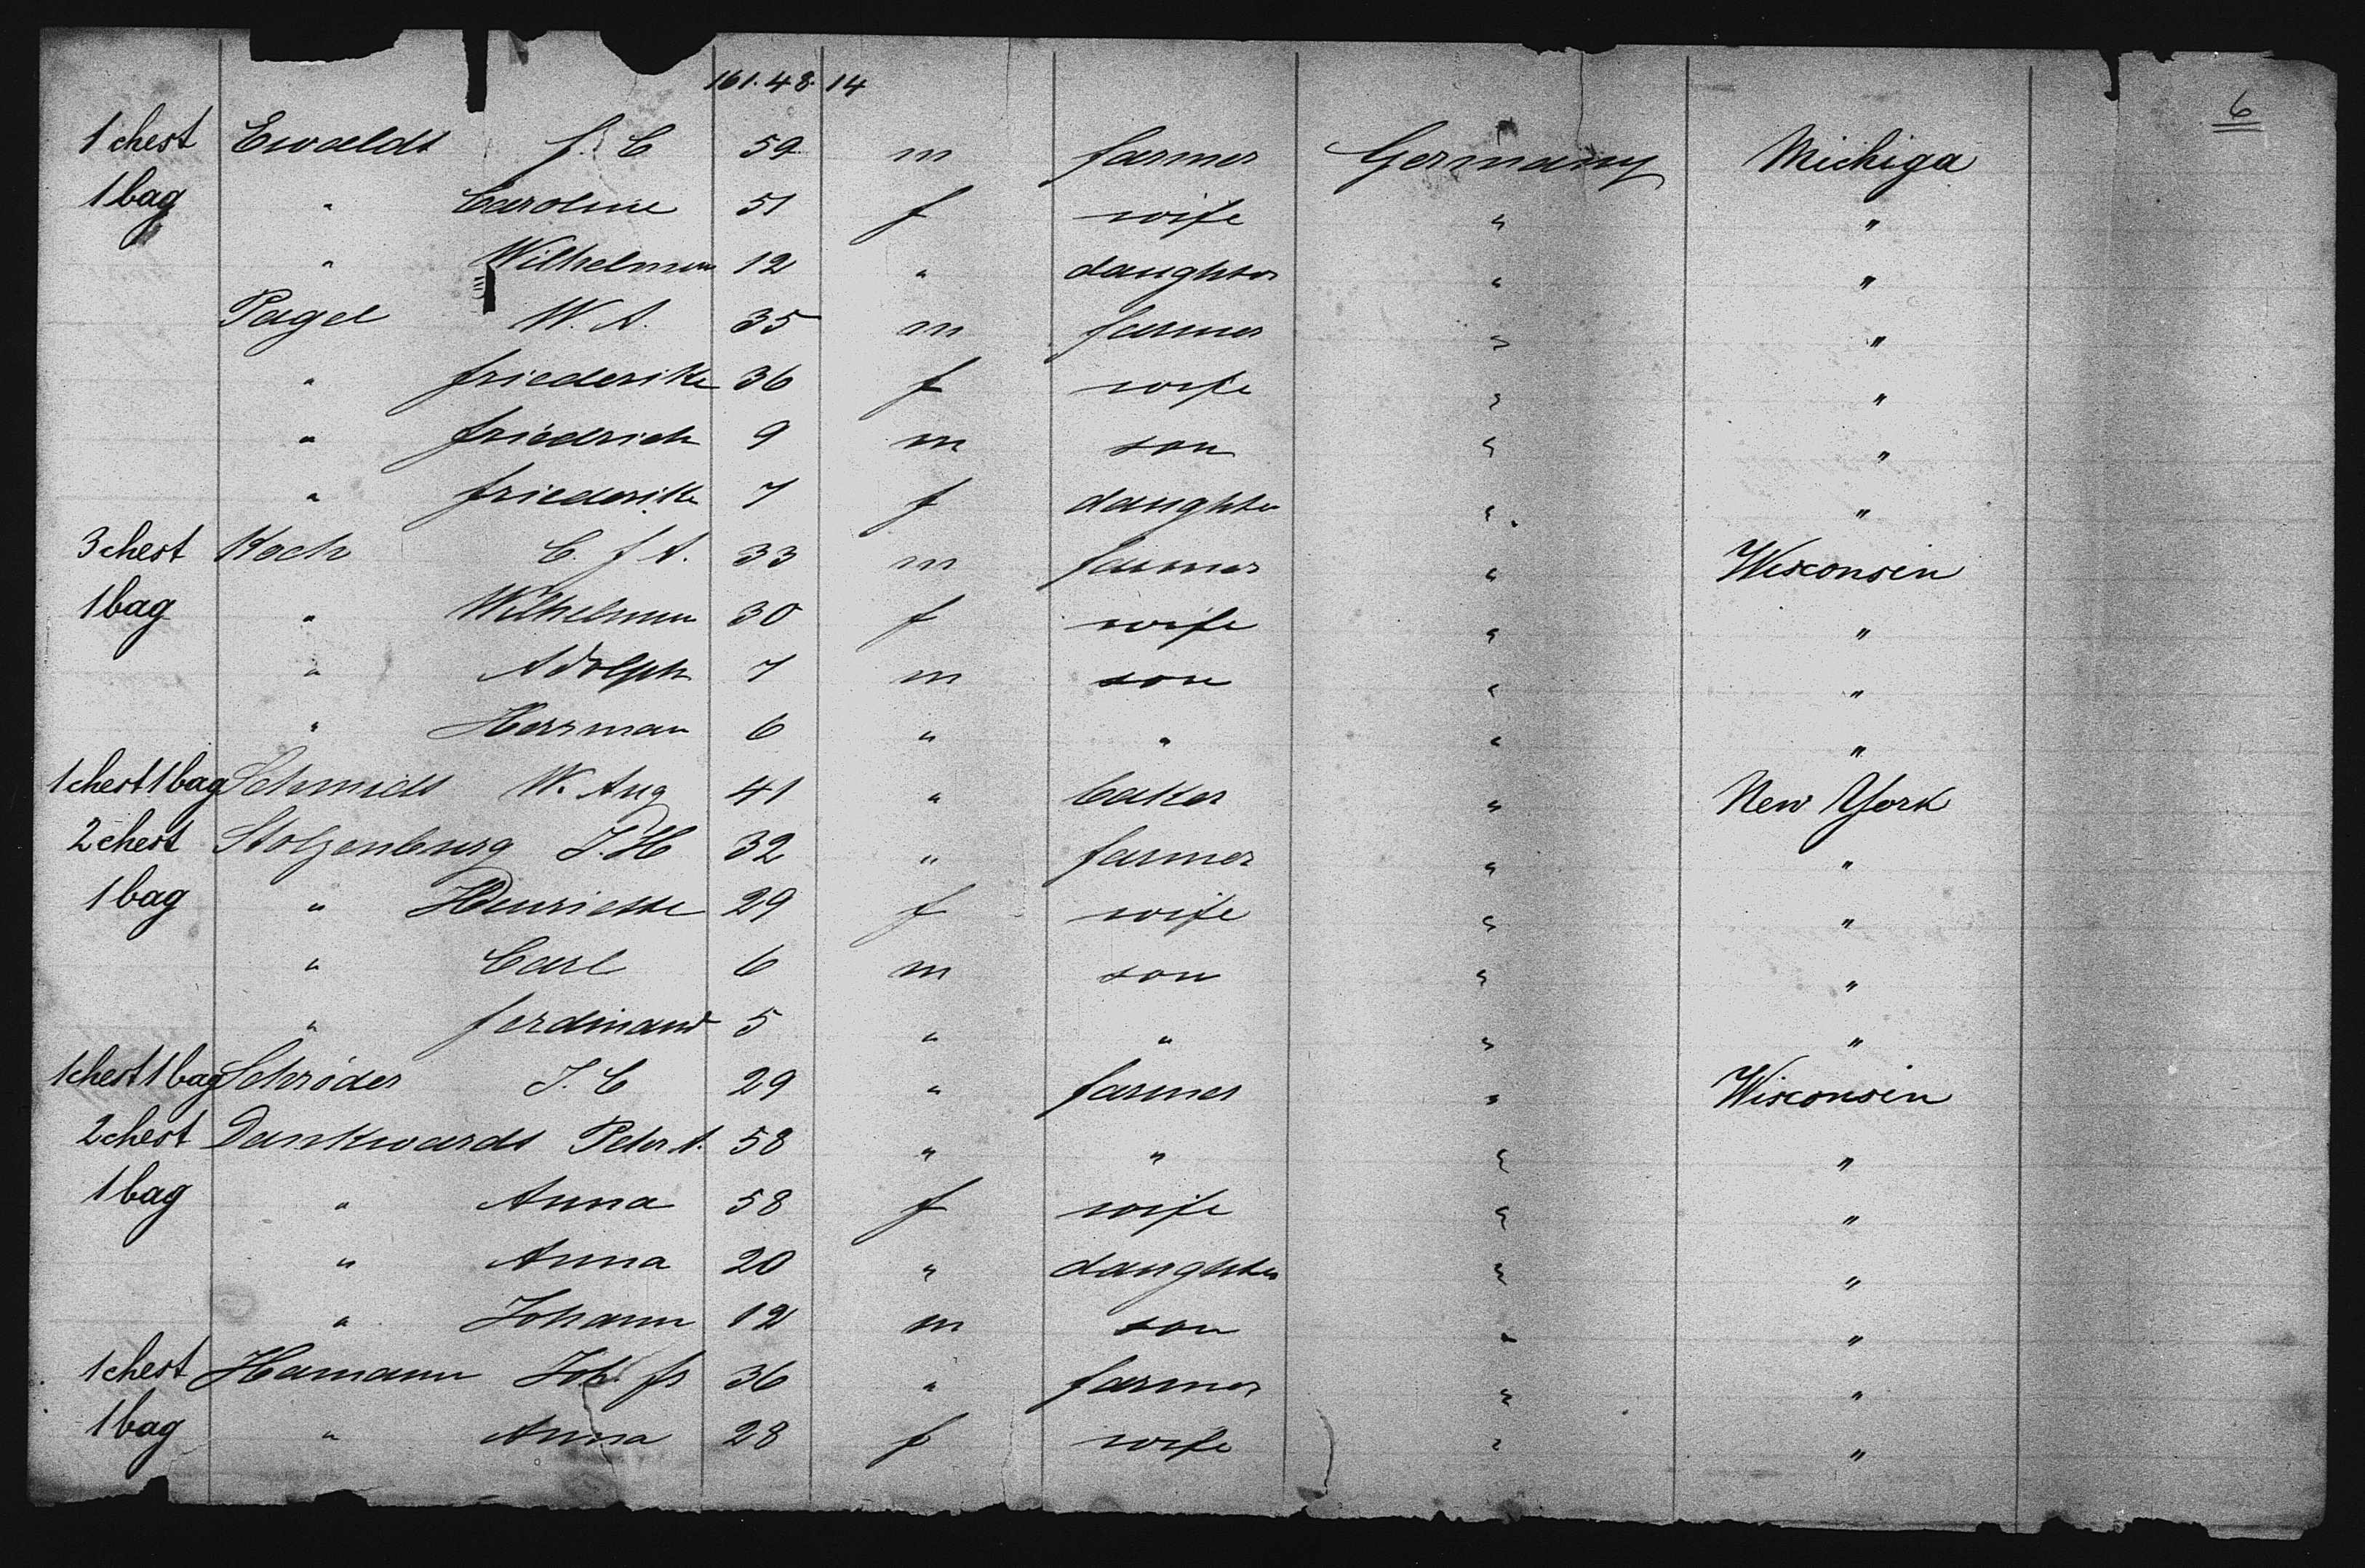 161.48.14
6
1 chest Ewaldt f. C 59 m farmer Germany Michiga
1 bag " Caroline 51 f wife " "
" Wilhelmine 12 " daughter " "
Pagel W. A. 35 m farmer " "
" friederike 36 f wife " "
" friedrich 9 m son " "
" friederike 7 f daughter " "
3 chest Koch C. f A. 33 m farmer " Wisconsin
1 bag " Wilhelmine 30 f wife " "
" Adolph 7 m son " "
" Herrman 6 " " " "
1 chest 1 bag Schmidt W. Aug 41 " baker " New York
2 chest Stolzenburg J. H 32 " farmer " "
1 bag " Henriette 29 f wife " "
" Carl 6 m son " "
" ferdinand 5 " " " "
1 chest 1 bag Schröder J. C 29 " farmer " Wisconsin
2 chest Dankwardt Peter A. 58 " " " "
1 bag " Anna 58 f wife " "
" Anna 20 " daughter " "
" Johann 12 m son " "
1 chest Hamann Joh. fr 36 " farmer " "
1 bag " Anna 28 f wife " "